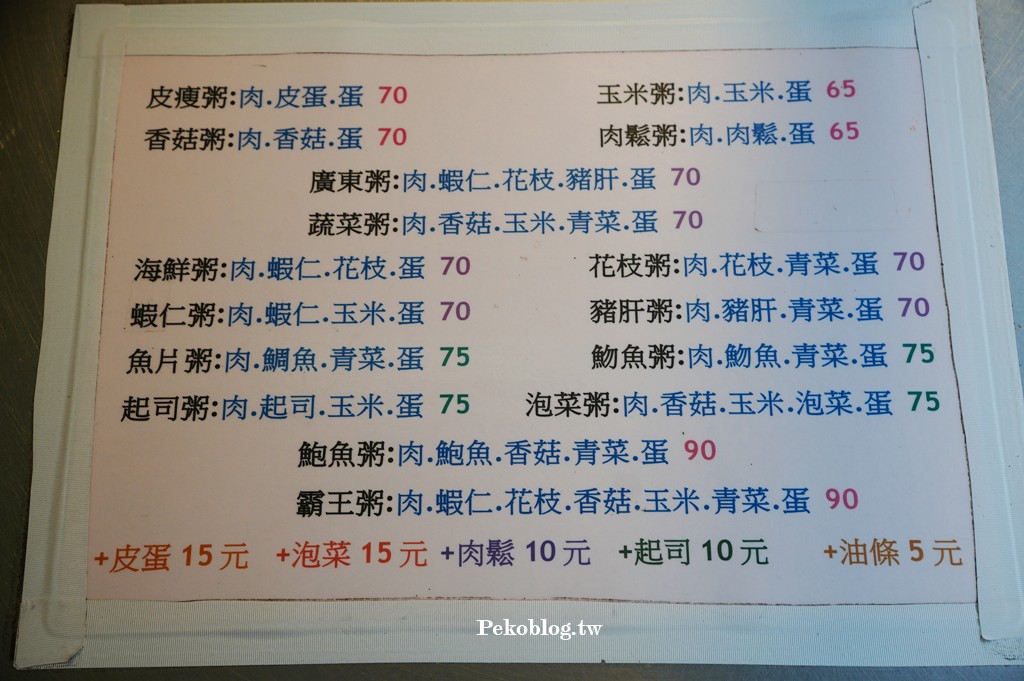 皮瘦粥:肉.皮蛋.蛋 70 玉米粥:肉.玉米.蛋 65
香菇粥:肉.香菇.蛋 70 肉鬆粥:肉.肉鬆.蛋 65
廣東粥:肉.蝦仁.花枝.豬肝.蛋 70
蔬菜粥:肉.香菇.玉米.青菜.蛋 70
海鮮粥:肉.蝦仁.花枝.蛋 70 花枝粥:肉.花枝.青菜.蛋 70
蝦仁粥:肉.蝦仁.玉米.蛋 70 豬肝粥:肉.豬肝.青菜.蛋 70
魚片粥:肉.鯛魚.青菜.蛋 75 魩魚粥:肉.魩魚.青菜.蛋 75
起司粥:肉.起司.玉米.蛋 75 泡菜粥:肉.香菇.玉米.泡菜.蛋 75
鮑魚粥:肉.鮑魚.香菇.青菜.蛋 90
霸王粥:肉.蝦仁.花枝.香菇.玉米.青菜.蛋 90
+皮蛋 15 元 +泡菜 15 元 +肉鬆 10 元 +起司 10 元 +油條 5 元
Pekoblog.tw